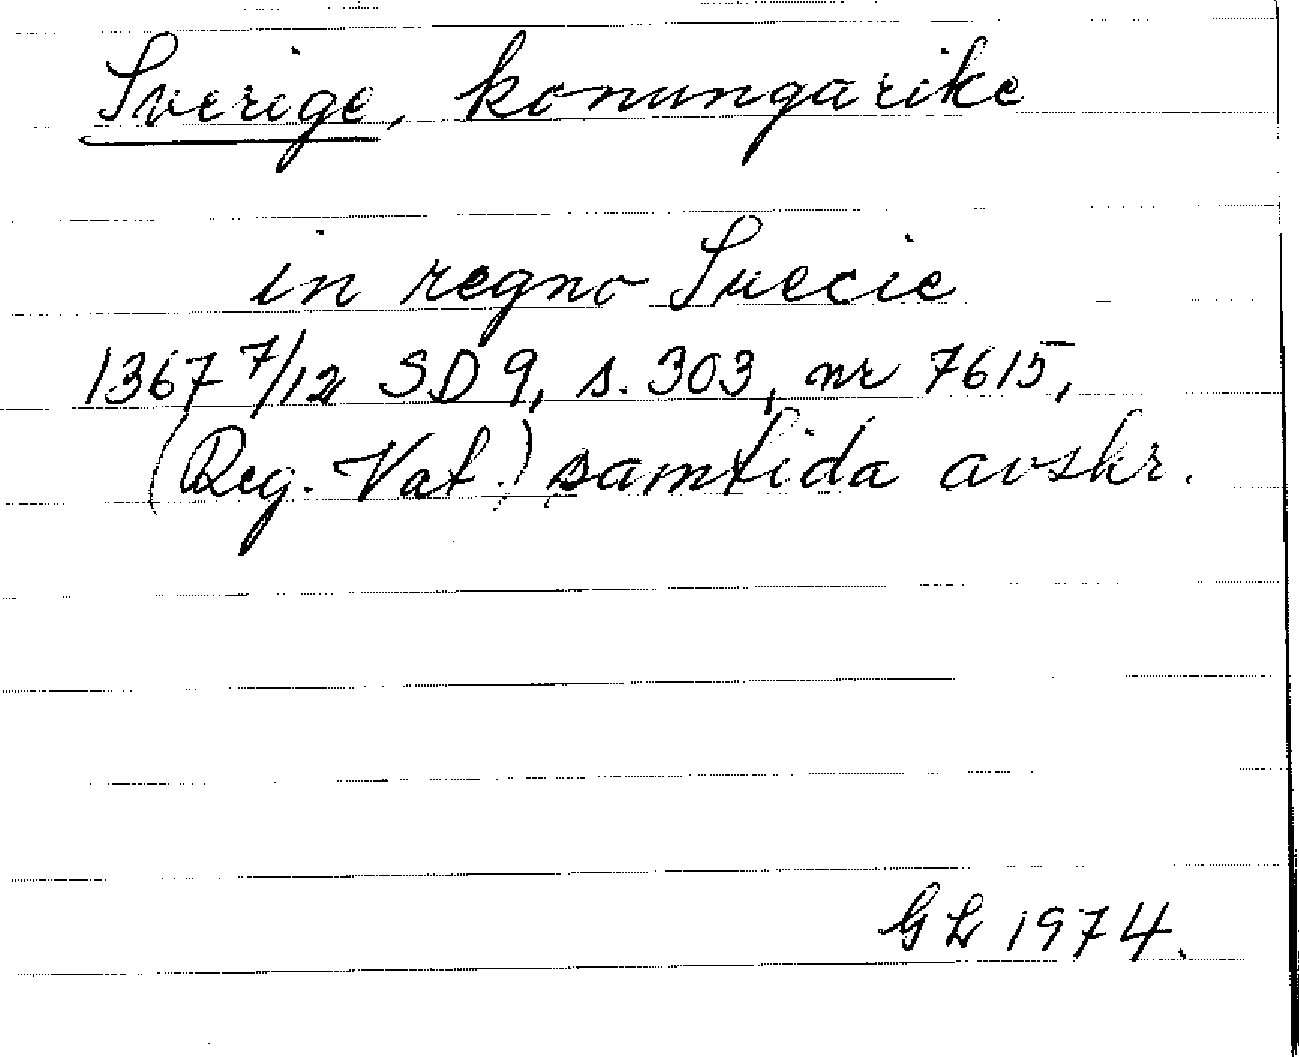 Sverige, konungarike
in regno Suecie
1367 7/12 SD 9, s. 303, nr 7615,
(Reg. Vat.) samtida avskr.
GL 1974.